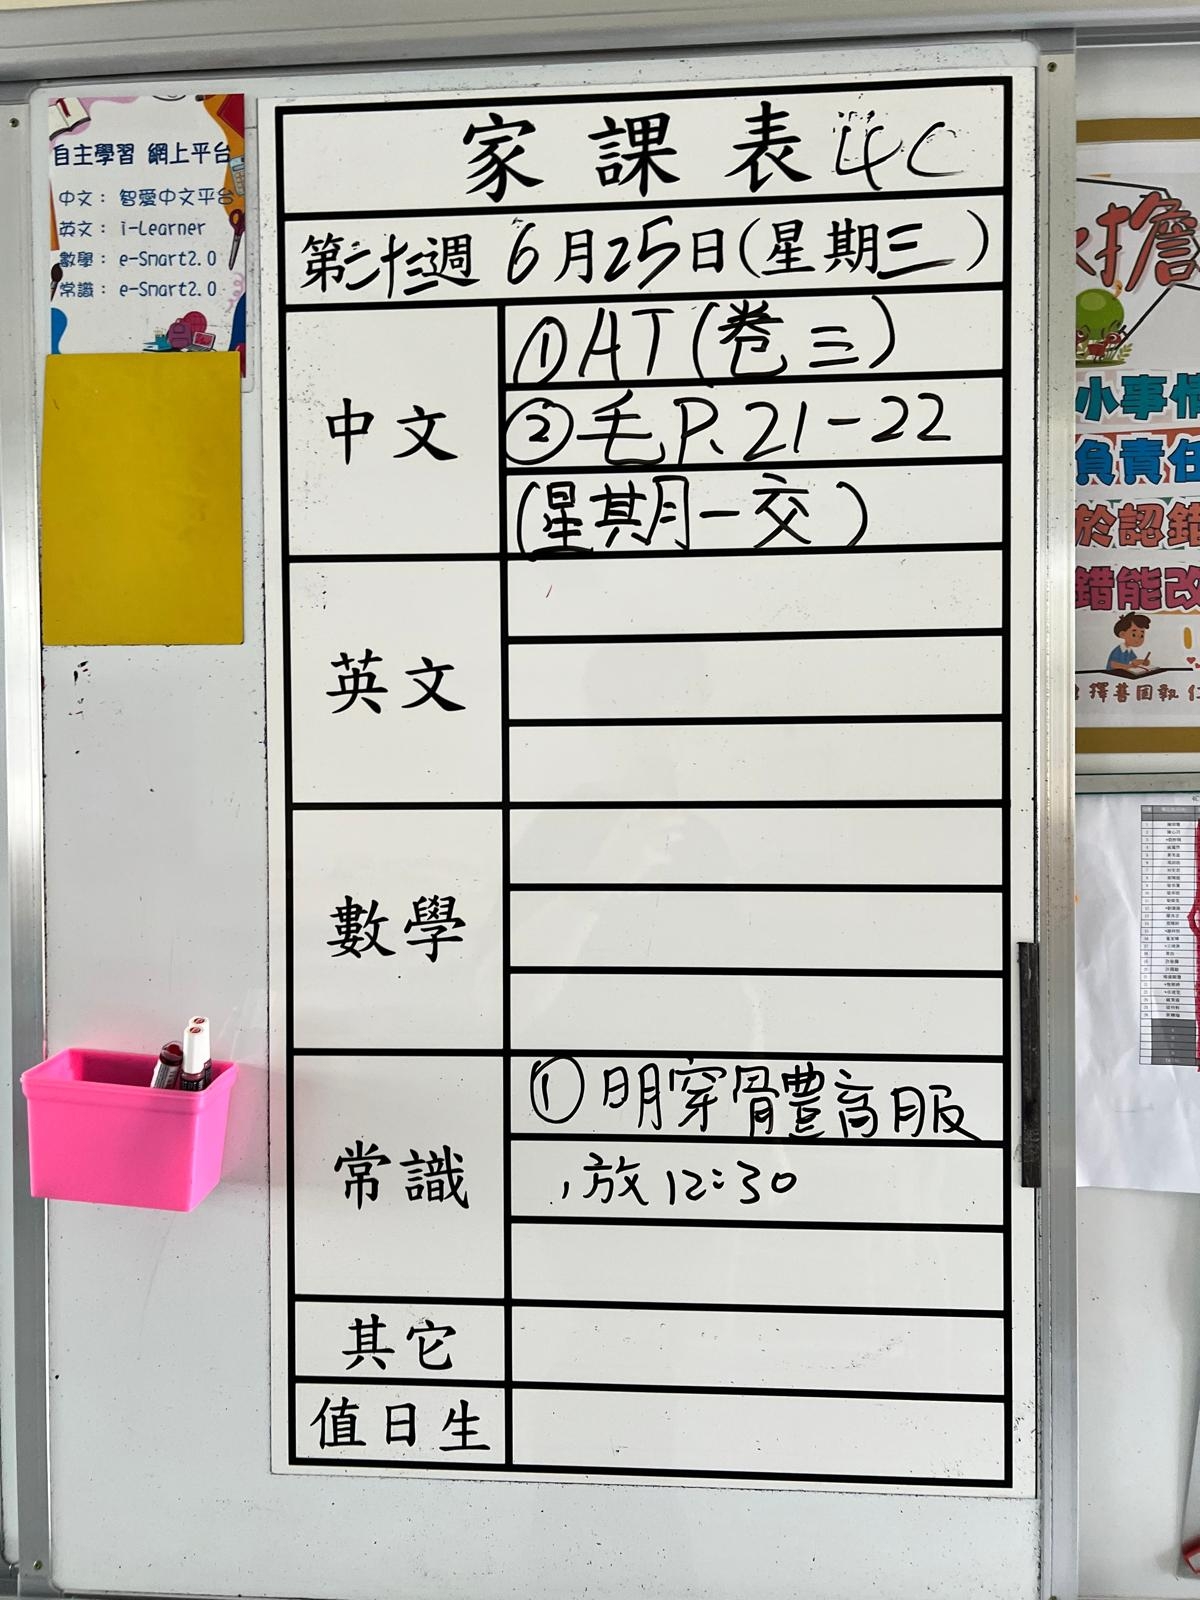 自主學習 網上平台
中文： 智愛中文平台
英文： i-Learner
數學： e-Smart2.0
常識： e-Smart2.0
家課表 4C
第二十三週 6月25日(星期三)
中文
①AT(卷三)
②毛P.21-22
(星期一交)
英文
數學
常識
①明穿體育服
,放12:30
其它
值日生
擔
小事情
負責任
於認錯
錯能改
擇善固執